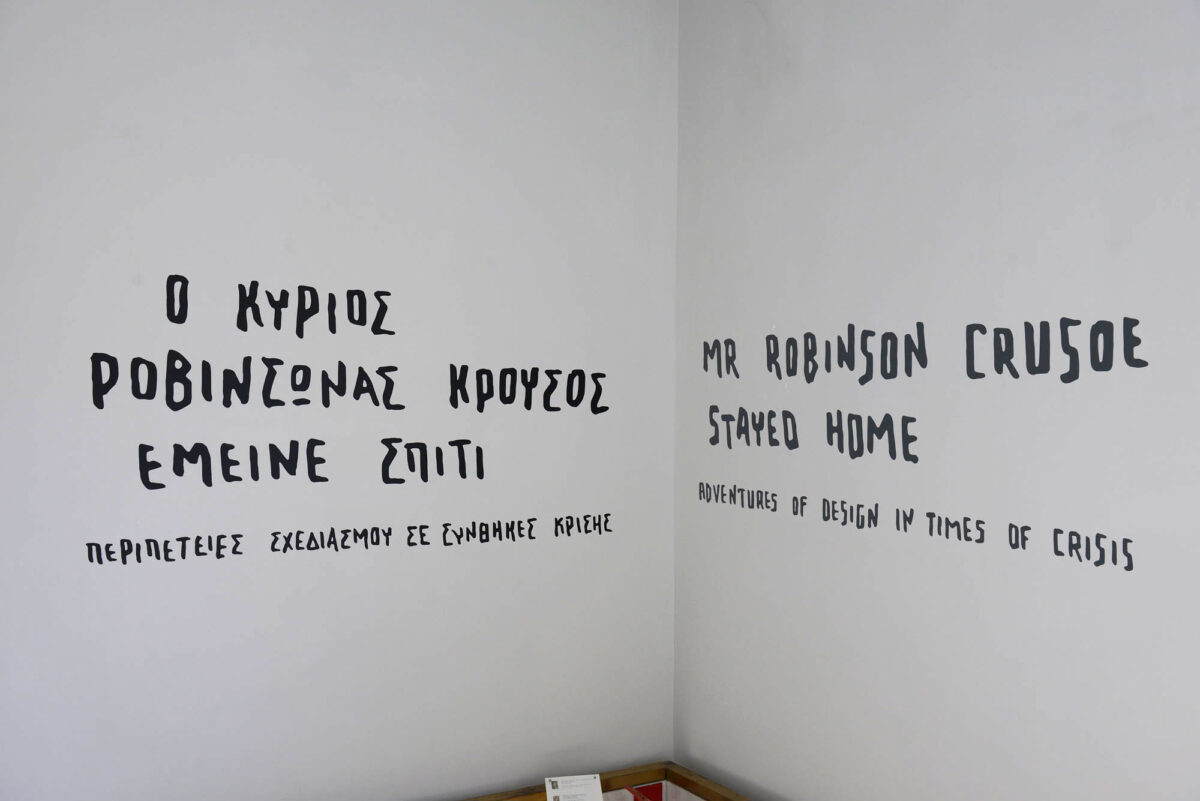 Ο ΚΥΡΙΟΣ
ΡΟΒΙΝΣΩΝΑΣ ΚΡΟΥΣΟΣ
ΕΜΕΙΝΕ ΣΠΙΤΙ
ΠΕΡΙΠΕΤΕΙΕΣ ΣΧΕΔΙΑΣΜΟΥ ΣΕ ΣΥΝΘΗΚΕΣ ΚΡΙΣΗΣ
MR ROBINSON CRUSOE
STAYED HOME
ADVENTURES OF DESIGN IN TIMES OF CRISIS